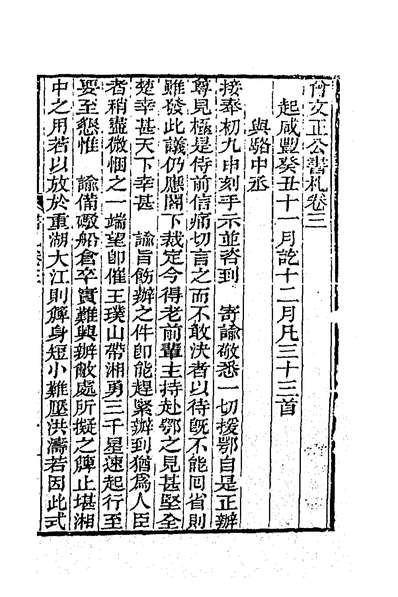 曾文正公書札卷三
起咸豐癸丑十一月訖十二月凡三十三首
與駱中丞
接奉初九申刻手示並咨到 寄諭敬悉一切援鄂自是正辦
尊見極是侍前信痛切言之而不敢決者以待既不能回省則
雖發此議仍應閣下裁定今得老前輩主持赴鄂之見甚堅全
楚幸甚天下幸甚 諭旨飭辦之件卽能趕緊辦到猶爲人臣
者稍盡微悃之一端望卽催王璞山帶湘勇三千星速起行至
要至懇惟 諭備礮船倉卒實難興辦敝處所擬之簰止堪湘
中之用若以放於重湖大江則簰身短小難壓洪濤若因此式